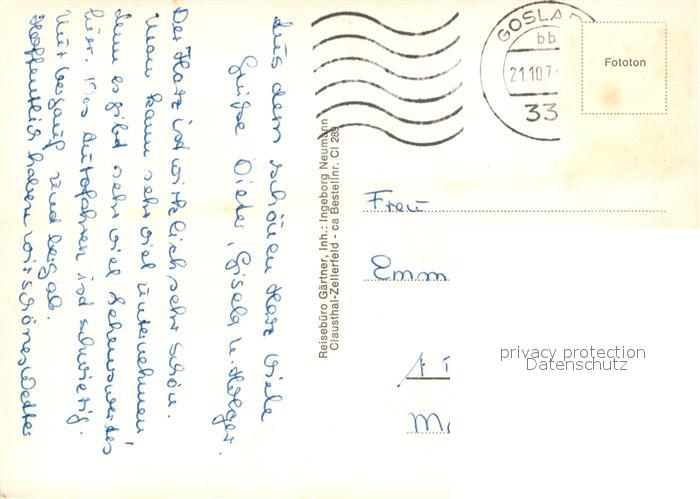 Aus dem schönen Harz viele
Grüße Dieter, Gisela u. Holger.
Der Harz ist wirklich sehr schön.
Man kann sehr viel unternehmen,
denn es gibt sehr viel Sehenswertes
hier. Das Autofahren ist schwierig.
Nur bergauf und bergab.
Hoffentlich haben wir schönes Wetter
Reisebüro Gärtner, Inh.: Ingeborg Neumann
Clausthal-Zellerfeld - ca Bestellnr. Cl 289
GOSLA
bb
21.10.7
33
Fototon
Frau
Emm
privacy protection
Datenschutz